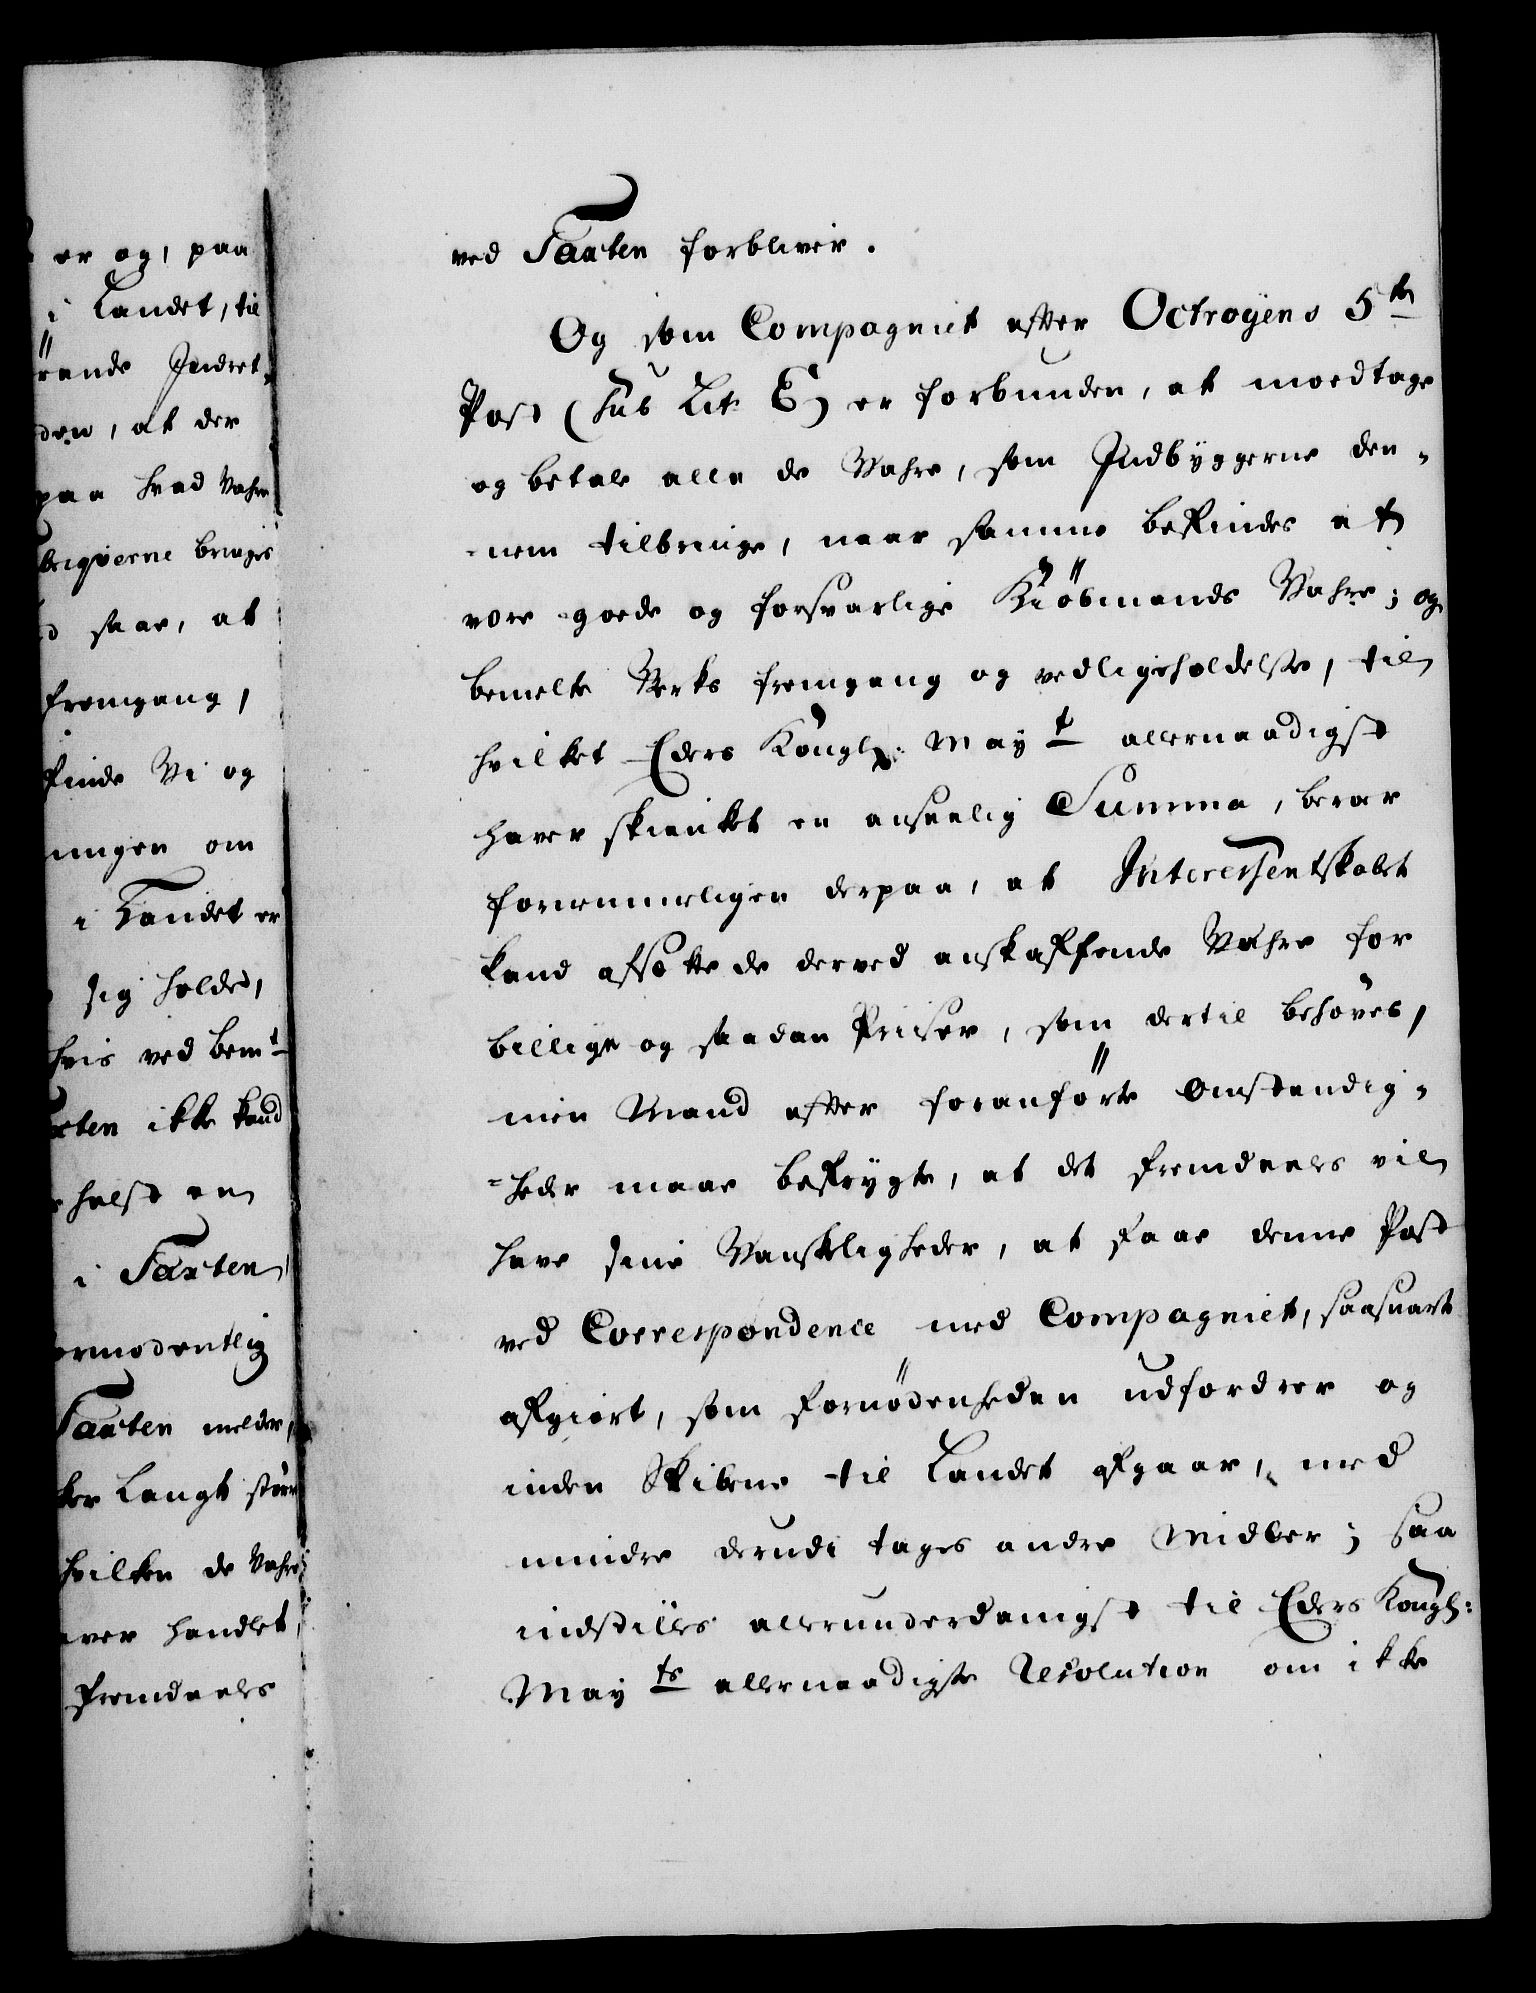 er og, paa
i Landet, til
rende Indret-
den, at der
paa hvad Vahre
briqverne bruges
saae, at
fremgang,
finde Vi og
ningen om
i Landet er
sig holde,
hvis ved bemt
axten ikke kand
helst en
i Taxten,
ormodentlig
Taxten melder,
ker langt større
hvilken de Vahre
aver handlet,
fremdeeles
ved Taxten forbliver.
Og som Compagniet efter Octroyens 5te
Post (sub Lit. E) er forbunden, at modtage
og betale alle de Vahre, som Indbyggerne den-
-nem tilbringe, naar samme befindes at
være goede og forsvarlige Kiøbmands Vahre; og
bemelte Verks fremgang og vedligeholdelse, til
hvilket Eders Kongl: Mayt allernaadigst
haver skienket en anseelig Summa, beroer
fornemmeligen derpaa, at Interessentskabet
kand afsette de derved anskaffende Vahre for
billige og saadan Priiser, som dertil behøves,
men Mand efter foranførte Omstendig-
-heder maae befrygte, at det fremdeeles vil
have sine Vanskeligheder, at faae denne Post
ved Correspondence med Compagniet, saasnart
afgiort, som fornødenheden udfordrer og
inden Skibene til Landet afgaar, med
mindre derudi tages andre Midler; saa
indstilles allerunderdanigst til Eders Kongl:
Mayts allernaadigste Resolution om ikke